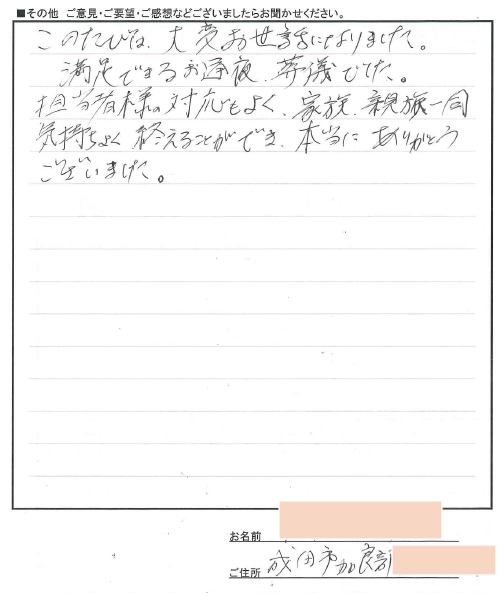 ■その他　ご意見・ご要望・ご感想などございましたらお聞かせください。
このたびは、大変お世話になりました。
満足できるお通夜、葬儀でした。
担当者様の対応もよく、家族、親族一同
気持ちよく終えることができ、本当にありがとう
ございました。
お名前
ご住所 成田市加良部